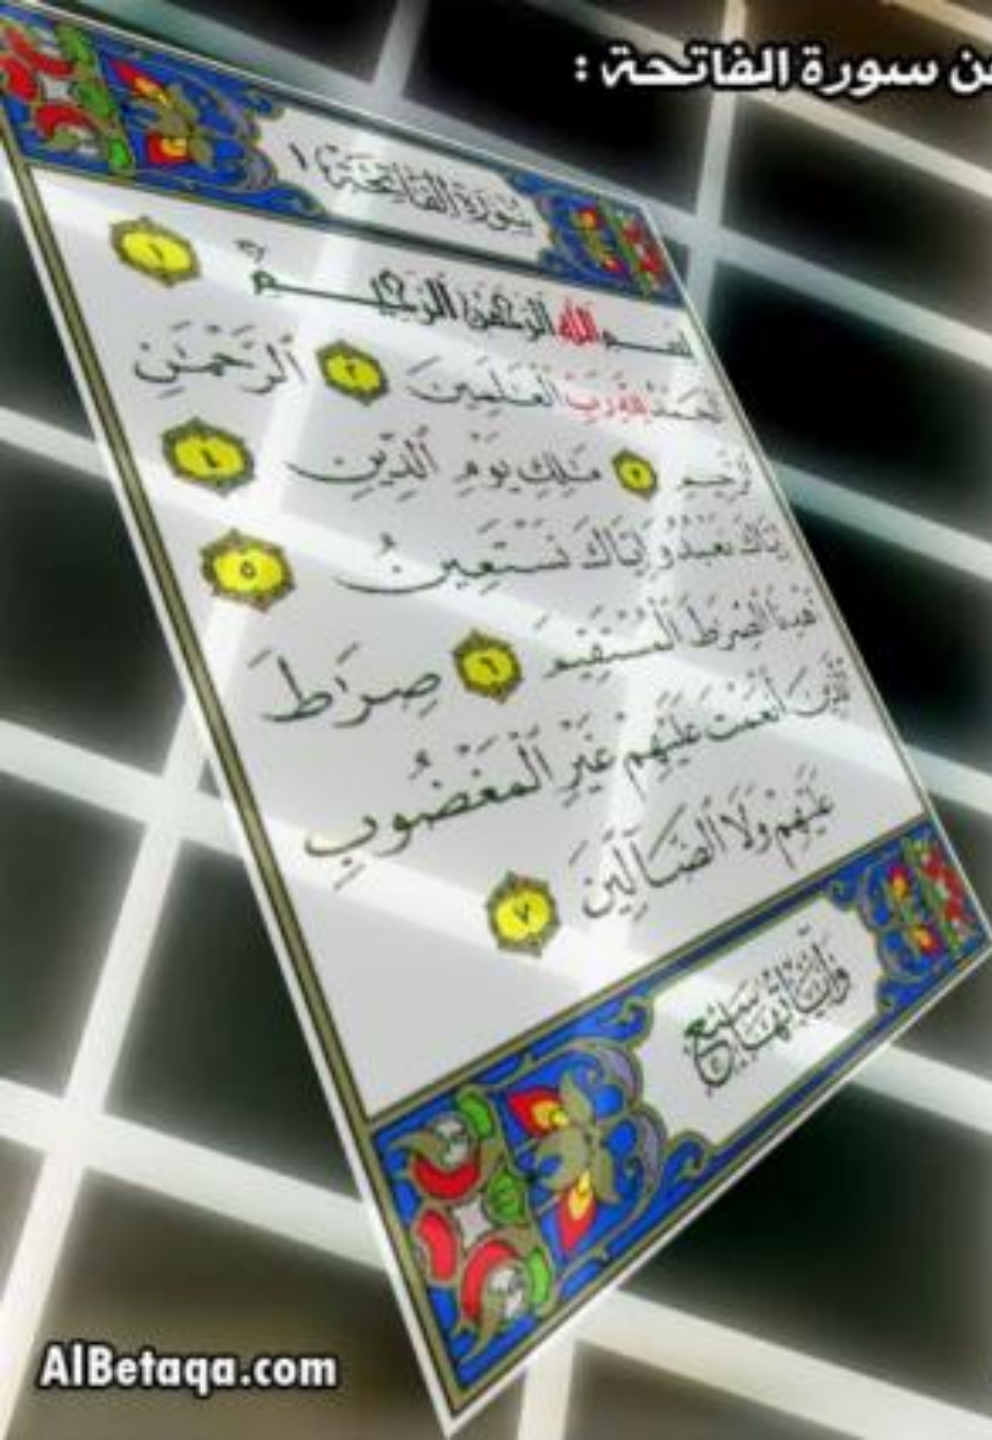 سورة الفاتحة :
سُورَةُ الْفَاتِحَةِ ١
بسم الله الرحمن الرحيم ١
رَبِّ الْعَٰلَمِينَ ٢ الرَّحْمَٰنِ
٣ مَٰلِكِ يَوْمِ الدِّينِ ٤
إِيَّاكَ نَعْبُدُ وَإِيَّاكَ نَسْتَعِينُ ٥
الصِّرَٰطَ الْمُسْتَقِيمَ ٦ صِرَٰطَ
أَنْعَمْتَ عَلَيْهِمْ غَيْرِ الْمَغْضُوبِ
عَلَيْهِمْ وَلَا الضَّآلِّينَ ٧
وَآيَاتُهَا سَبْعٌ
AlBetaqa.com